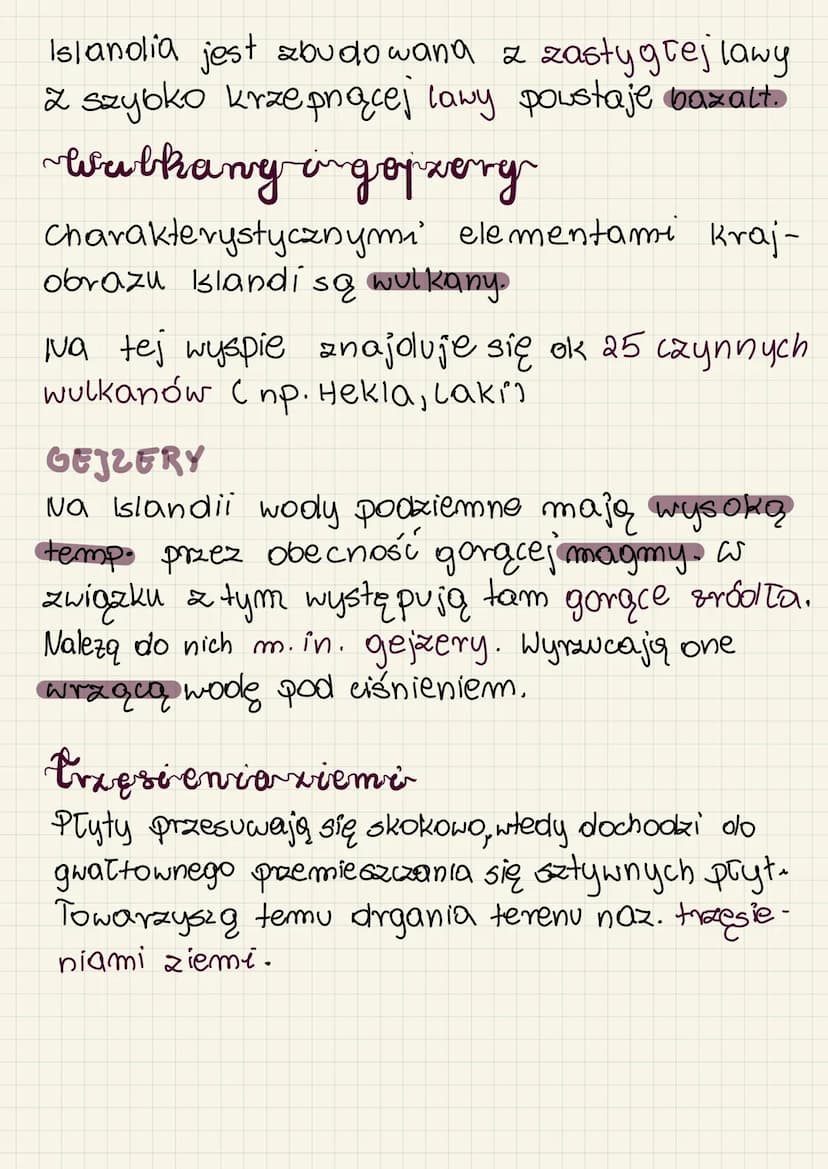 Islandia jest zbudowana z zastygłej lawy
z szybko krzepnącej lawy powstaje bazalt.
Wulkany i gejzery
Charakterystycznymi elementami kraj-
obrazu Islandi są wulkany.
Na tej wyspie znajduje się ok 25 czynnych
wulkanów (np. Hekla, Laki)
GEJZERY
Na Islandii wody podziemne mają wysoką
temp. przez obecność gorącej magmy. W
związku z tym występują tam gorące źródła.
Należą do nich m.in. gejzery. Wyrzucają one
wrzącą wodę pod ciśnieniem.
trzęsienia ziemi
Płyty przesuwają się skokowo, wtedy dochodzi do
gwałtownego przemieszczania się sztywnych płyt.
Towarzyszą temu drgania terenu naz. trzęsie-
niami ziemi.